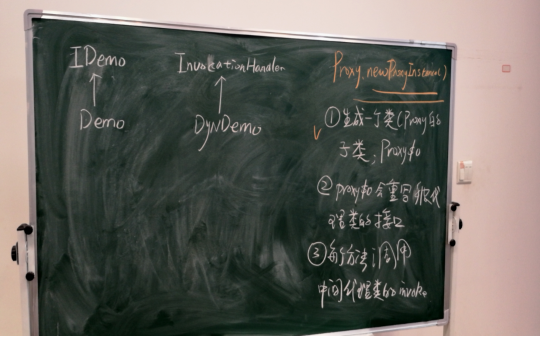 IDemo
Demo
InvocationHandler
DynDemo
Proxy.newProxyInstance()
①生成一个类(Proxy的
子类,Proxy$0
②proxy$0会重写
理类的接口
③
中间代理类的invoke